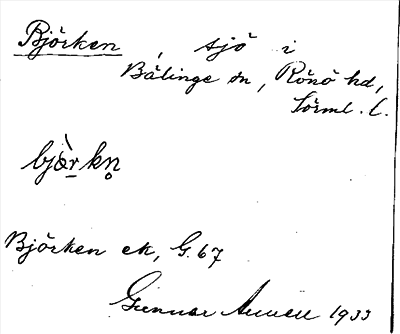 Björken, sjö i
Bälinge sn, Rönö hd,
Sörml. l.
bjæ̀r̠kn̥
Björken ek, G. 67
Gunnar 1933